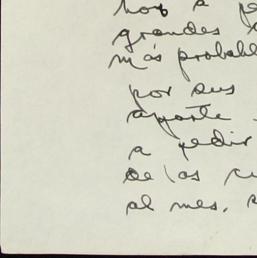 a pe
grandes
más probabl
por sus
aporte
a pedir
de las cu
al mes.